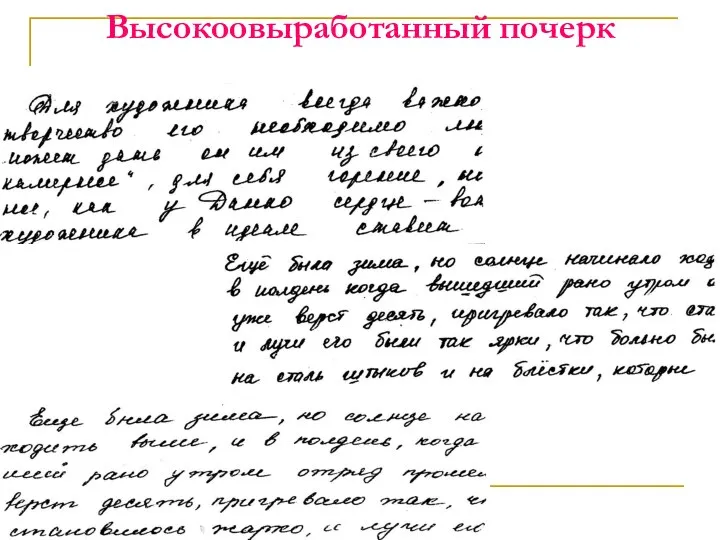 Высокоовыработанный почерк
Для художника всегда важно
творчество его необходимо лю
может дать он им из своего
камерное", для себя горение, не
нее, как у Данко сердце – вот
художника в идеале ставит
Ещё была зима, но солнце начинало ход
в полдень когда вышедший рано утром о
уже верст десять, пригревало так, что ста
и лучи его были так ярки, что больно бы
на сталь штыков и на блёстки, которые
Еще была зима, но солнце на
ходить выше, и в полдень, когда
ший рано утром отряд проше
верст десять, пригревало так, ч
становилось жарко, и лучи ег